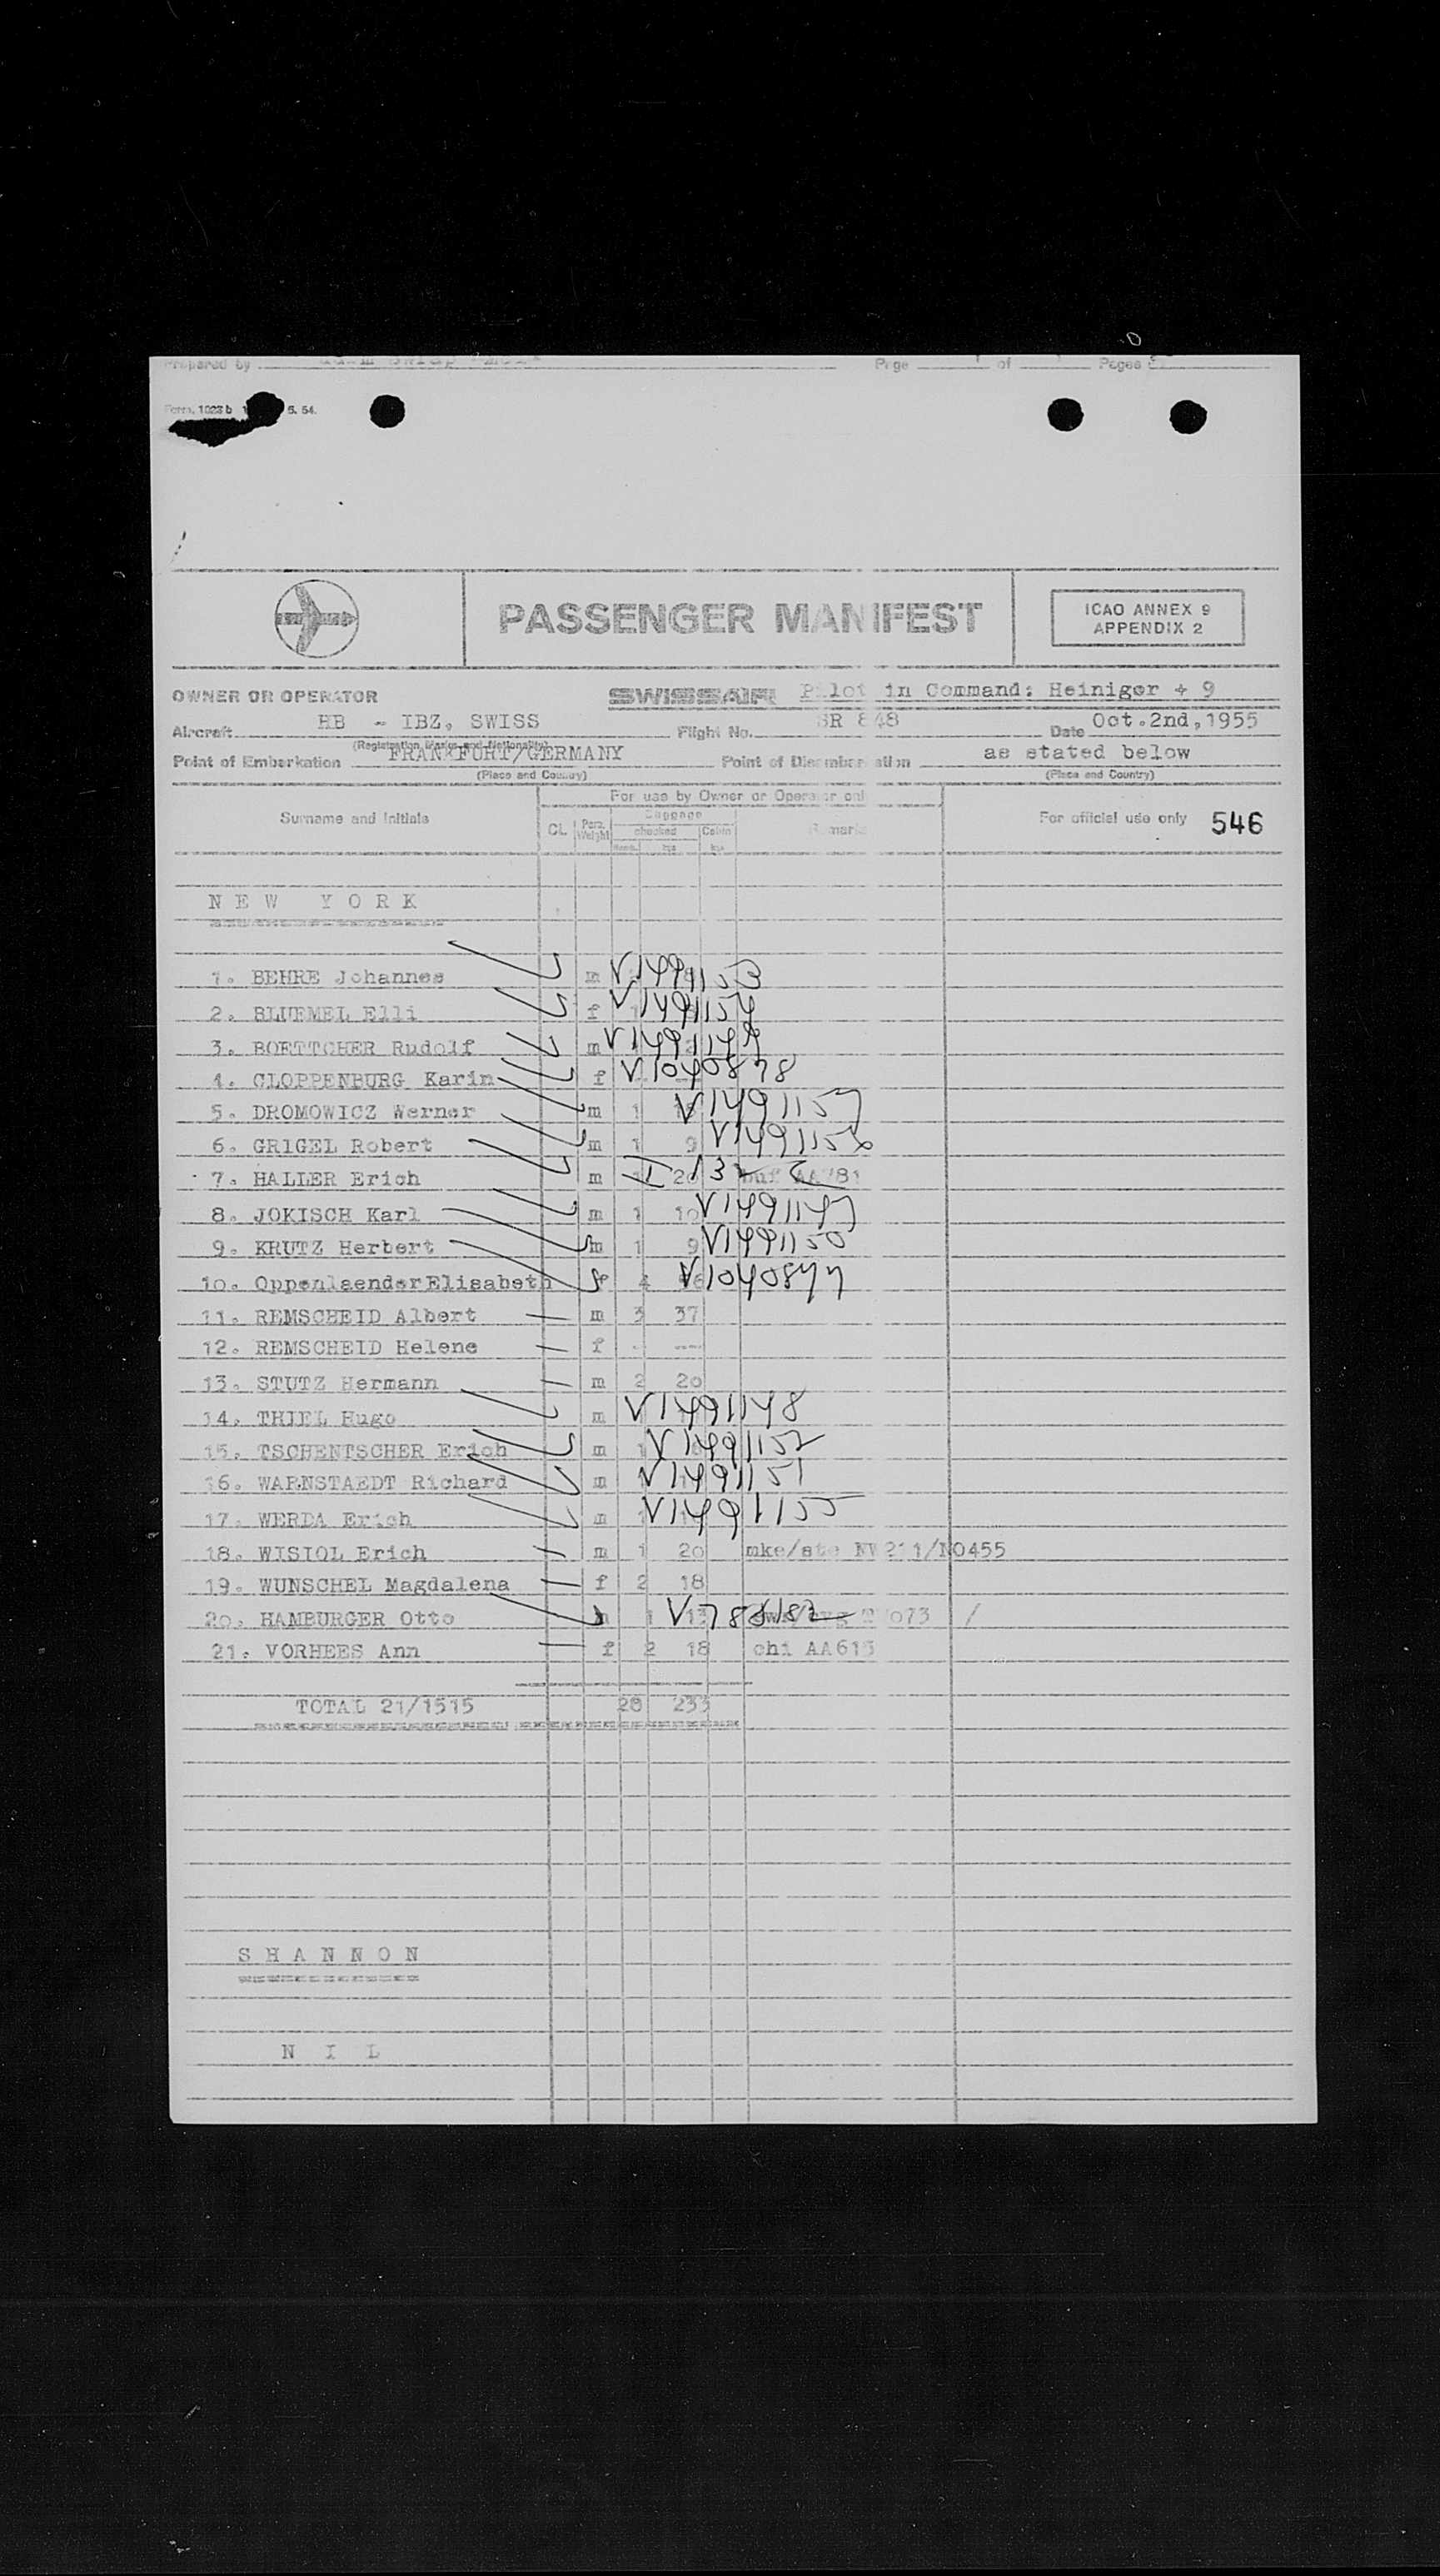 Prepared by Page of Pages
Form. 1023 b 5. 54.
PASSENGER MANIFEST
ICAO ANNEX 9
APPENDIX 2
OWNER OR OPERATOR SWISSAIR Pilot in Command: Heiniger + 9
Aircraft HB - IBZ, SWISS Flight No. SR 848 Date Oct.2nd,1955
(Registration Marks and Nationality)
Point of Embarkation FRANKFURT/GERMANY Point of Disembarkation as stated below
(Place and Country) (Place and Country)
For use by Owner or Operator only
Surname and Initials CL Pers. Weight Baggage checked Cabin Remarks For official use only 546
kgs kgs
NEW YORK
1. BEHRE Johannes m V1491153
2. BLUEMEL Elli f V1491154
3. BOETTCHER Rudolf m V1491149
4. CLOPPENBURG Karin f V1040878
5. DROMOWICZ Werner m 1 V1491157
6. GRIGEL Robert m 1 9 V1491156
7. HALLER Erich m 20 buf AA781
8. JOKISCH Karl m 1 10 V1491147
9. KRUTZ Herbert m 1 9 V1491150
10. Oppenlaender Elisabeth f 4 V1040877
11. REMSCHEID Albert — m 3 37
12. REMSCHEID Helene — f - ---
13. STUTZ Hermann — m 2 20
14. THIEL Hugo m V1491148
15. TSCHENTSCHER Erich m 1 V1491152
16. WARNSTAEDT Richard m V1491151
17. WERDA Erich m V1491155
18. WISIOL Erich — m 1 20 mke/ste NW211/NO455
19. WUNSCHEL Magdalena — f 2 18
20. HAMBURGER Otto m 1 13 073 /
21. VORHEES Ann — f 2 18 chi AA615
TOTAL 21/1515 28 233
SHANNON
NIL